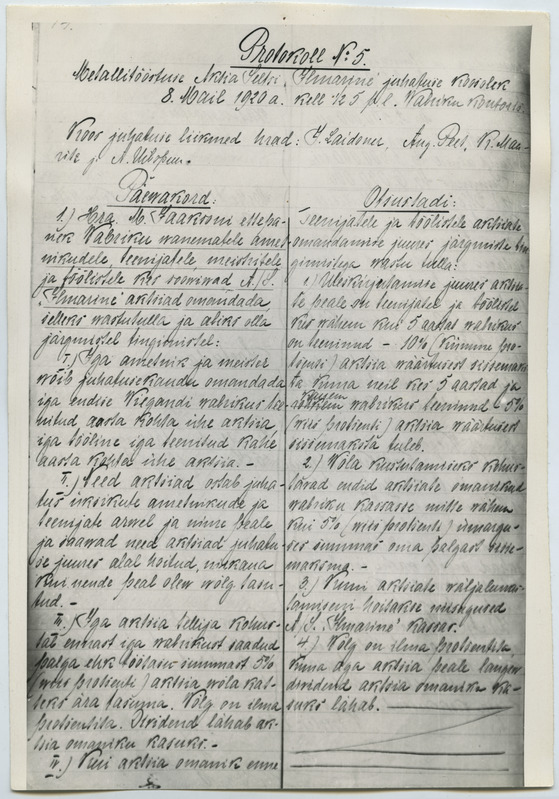 Protokoll № 5.
Metallitööstuse Aktsia Seltsi „Ilmarine" juhatuse koosolek
8. Mail 1920 a. kell ½5 p. l. Wabriku kontoris.
Koos juhatuse liikmed hrad: J. Laidoner, Aug. Peet, K. Maa-
Päewakord:
1.) Hra. M. Jaaksoni ettepa-
nek Wabriku wanematele amet-
nikudele, teenijatele meistritele
ja töölistele kes soowiwad A/S.
„Ilmarine" aktsiad omandada
selleks wastutulla ja abiks olla
järgmistel tingimistel:
I.) Iga ametnik ja meister
wõib juhatusekaudu omandada
iga endise Wiegandi wabrikus tee-
nitud aasta kohta ühe aktsia,
iga tööline iga teenitud kahe
aasta kohta ühe aktsia. –
II.) Need aktsiad ostab juha-
tus üksikute ametnikude ja
teenijate arwel ja nime peale
ja saawad need aktsiad juhatu-
se juures alal hoitud, niikaua
kui nende peal olew wõlg tasu-
tud. –
III.) Iga aktsia tellija kohus-
tab ennast iga wabrikust saadud
palga ehk töötasu summast 5%
(wiis protsenti) aktsia wõla kat-
teks ära tasuma. Wõlg on ilma
protsentita. Dividend lähab ak-
tsia omaniku kasuks. –
IV.) Kui aktsia omanik enne
Otsustadi:
Teenijatele ja töölistele aktsiate
omandamise juures järgmiste tin-
gimistega wastu tulla:
1.) Üleskirjutamise juures aktsia-
te peale on teenijatel ja töölistel
kes wähem kui 5 aastat wabrikus
on teeninud – 10% (kümme pro-
tsenti) aktsia wäärtusest sissemaks-
ta kuna neil kes 5 aastad ja
rohkem wabrikus teeninud – 5%
(wiis protsenti) aktsia wäärtusest
sissemaksta tuleb.
2.) Wõla kustutamiseks kohus-
tawad endid aktsiate omanikud
wabriku kassasse mitte wähem
kui 5% (wiis protsenti) ümargu-
ses summas oma palgast sisse-
maksma. –
3.) Kuni aktsiate wäljaluns-
tamiseni hoitakse niisugused
A. S. „Ilmarine" kassas.
4.) Wõlg on ilma protsentita
kuna aga aktsia peale langew
dividend aktsia omaniku ka-
suks lähab.